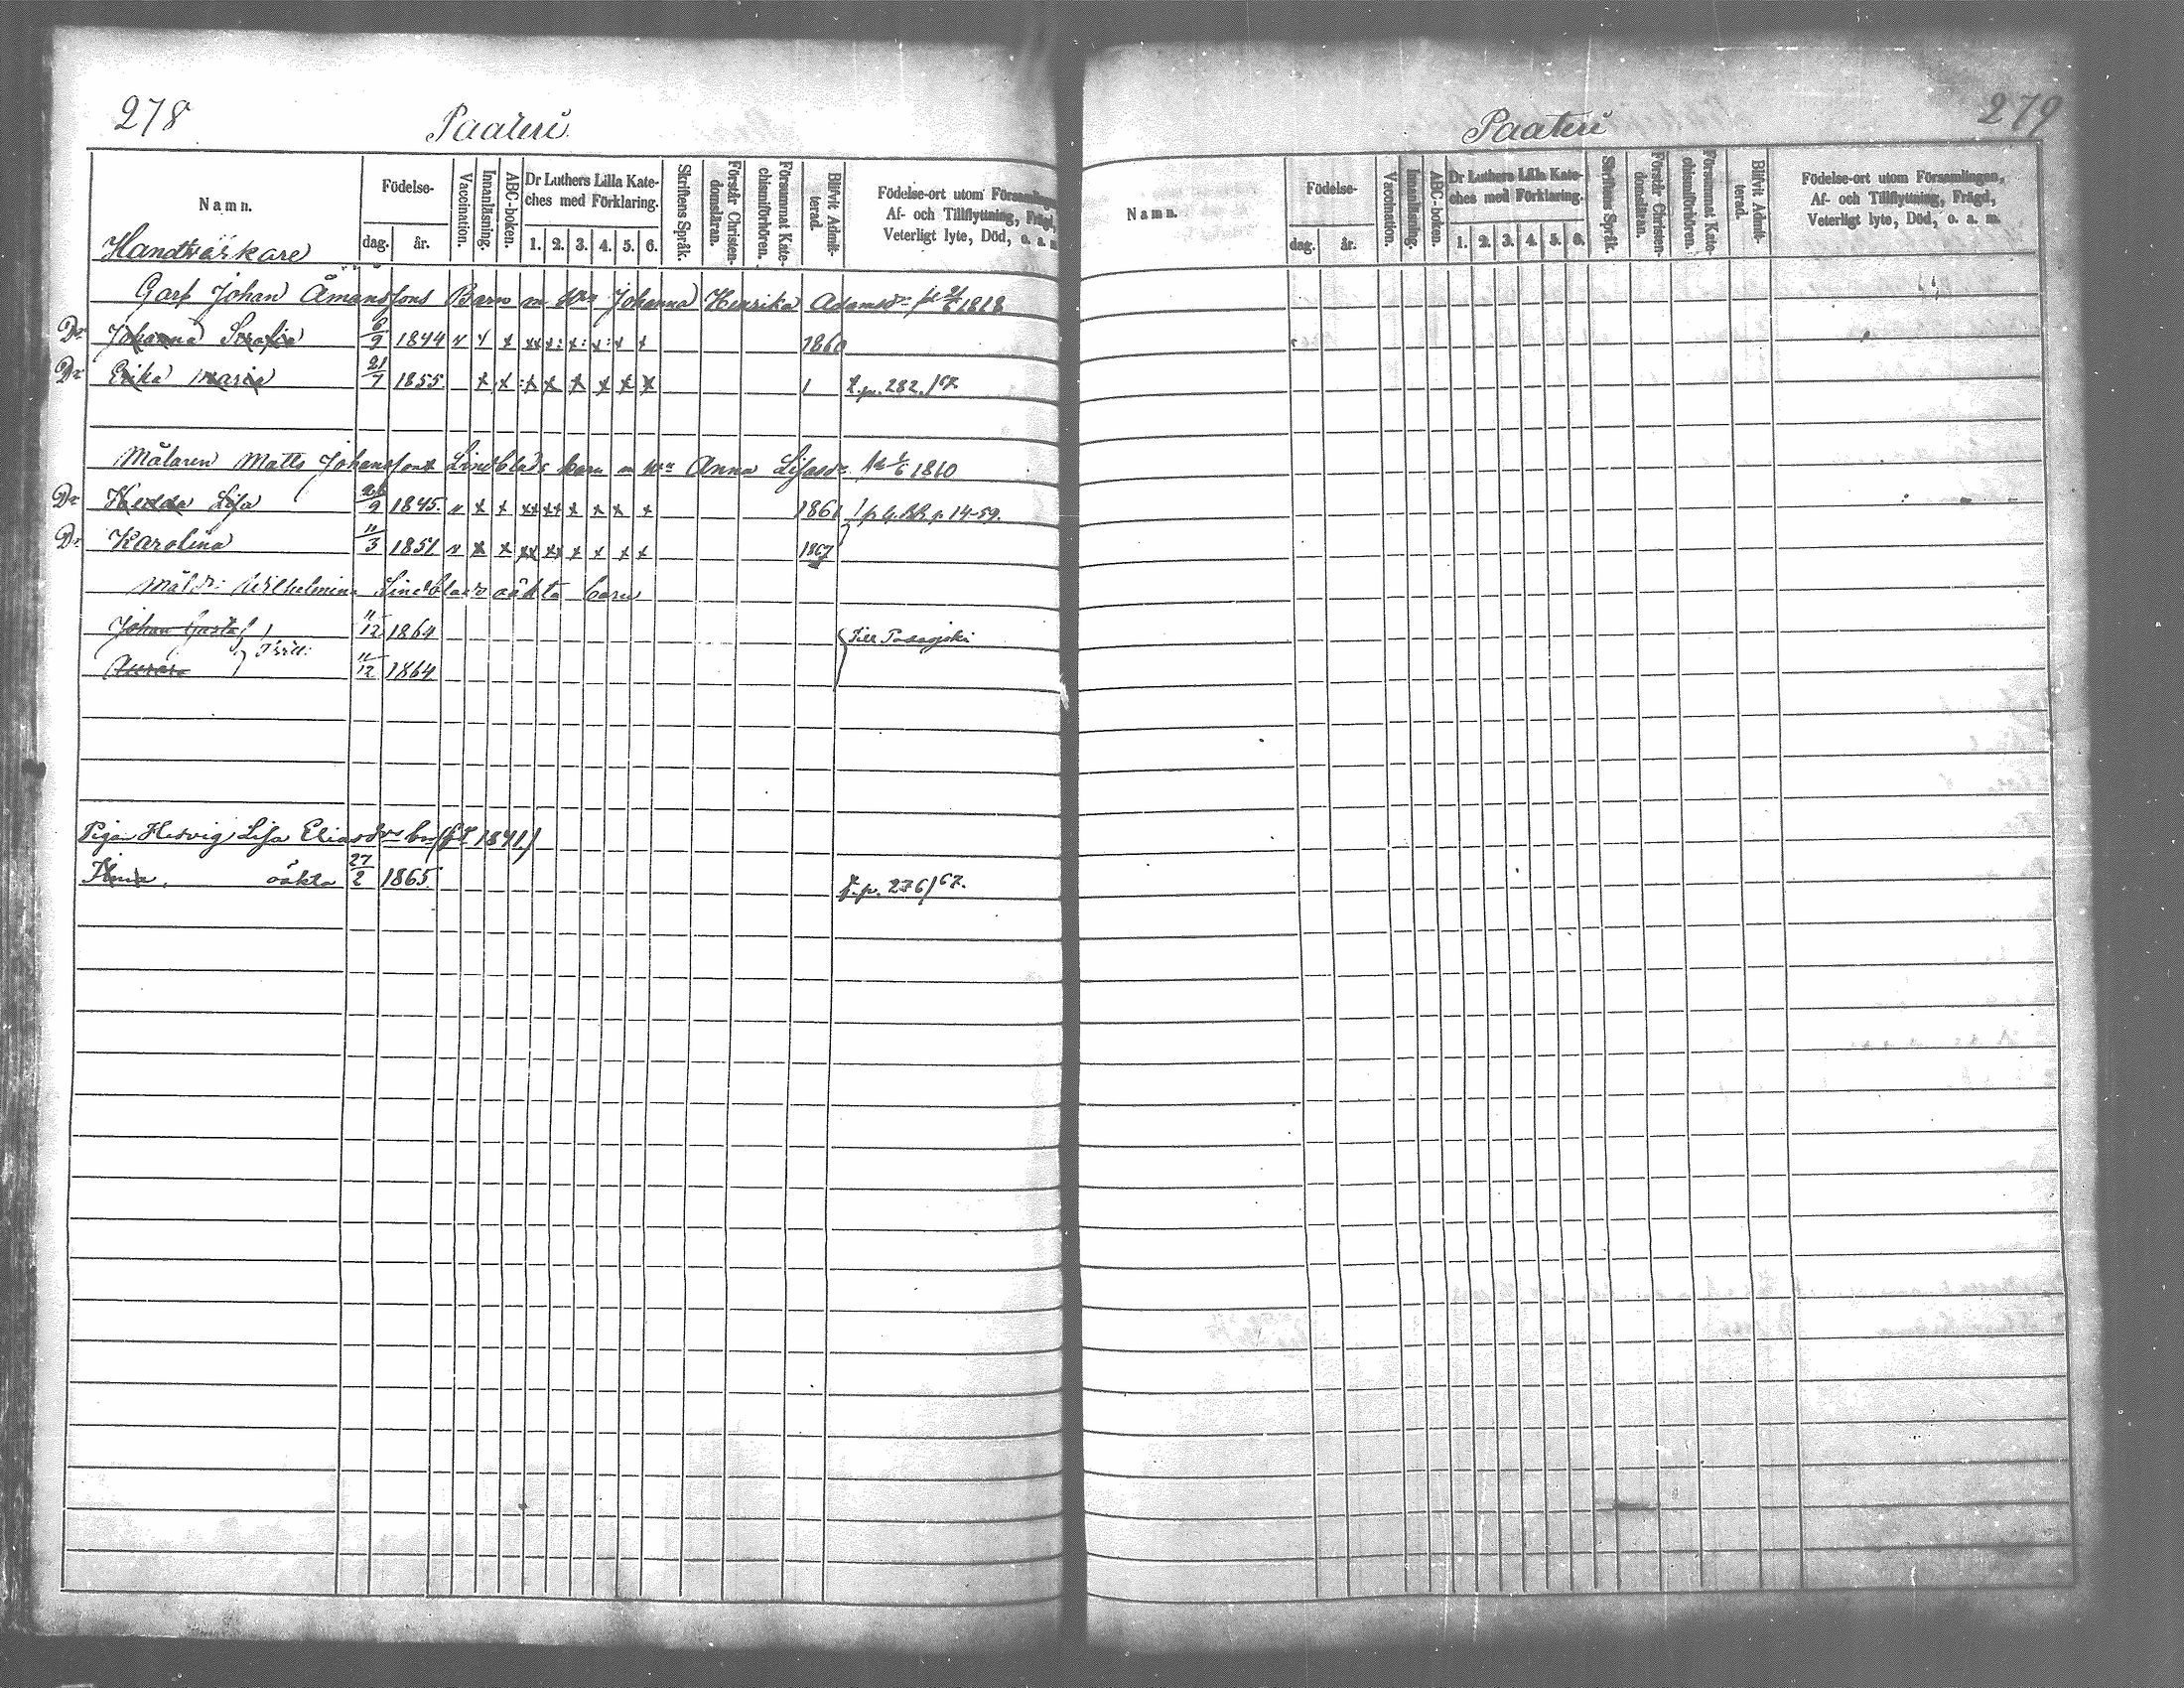 278
Paateri
Namn.
Födelse-
dag.
år.
Vaccination.
Innanläsning.
ABC-boken.
Dr Luthers Lilla Kate-
ches med Förklaring.
1. 2. 3. 4. 5. 6.
Skriftens Språk.
Förstår Christen-
domsläran.
Försummat Kate-
chismiförhören.
Blifvit Admit-
terad.
Födelse-ort utom Församlingen
Af- och Tillflyttning, Frägd,
Veterligt lyte, Död, o. a. m.
Handtvärkare
Garf Johan Åmansson Barn m Johanna Henrika Adamsdr 1818
Dr Johanna Serafia 6/9 1844 1860
Dr Erika Maria 21/7 1855 f. p. 282. /67
Målaren Matts Johanssons Lindblads barn m Anna Lisasdr 1810
Dr Hedda Lisa 1845. 1861 p. 14-59.
Dr Karolina 11/3 1851 1867
Måldr Wilhelmina Lindblads oäkta barn
Johan Gustaf 11/12 1864
Till
Aurora 11/12 1864
Pigan Hedvig Lisa Eliasdrs (1841)
oäkta 27/2 1865 f. p. 276/67.
279
Paateri
Namn.
Födelse-
dag.
år.
Vaccination.
Innanläsning.
ABC-boken.
Dr Luthers Lilla Kate-
ches med Förklaring.
1. 2. 3. 4. 5. 6.
Skriftens Språk.
Förstår Christen-
domsläran.
Försummat Kate-
chismiförhören.
Blifvit Admit-
terad.
Födelse-ort utom Församlingen,
Af- och Tillflyttning, Frägd,
Veterligt lyte, Död, o. a. m.